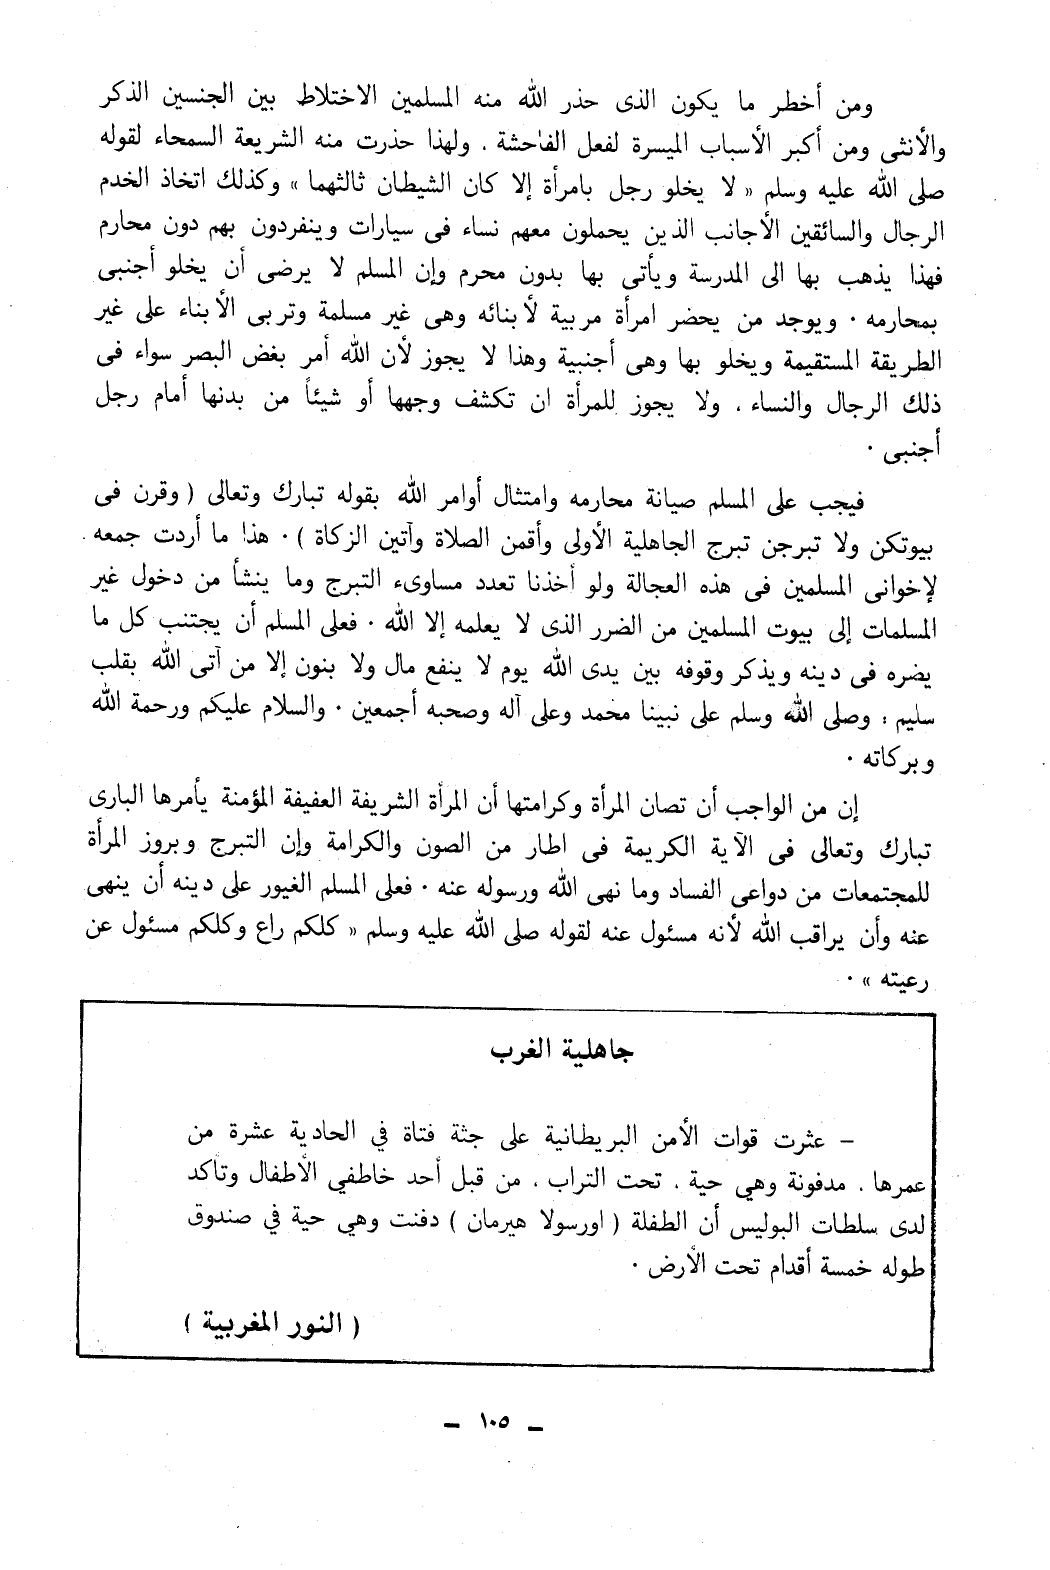 ومن أخطر ما يكون الذى حذر الله منه المسلمين الاختلاط بين الجنسين الذكر
والأنثى ومن أكبر الأسباب الميسرة لفعل الفاحشة . ولهذا حذرت منه الشريعة السمحاء لقوله
صلى الله عليه وسلم « لا يخلو رجل بامرأة إلا كان الشيطان ثالثهما » وكذلك اتخاذ الخدم
الرجال والسائقين الأجانب الذين يحملون معهم نساء فى سيارات وينفردون بهم دون محارم
فهذا يذهب بها الى المدرسة ويأتى بها بدون محرم وإن المسلم لا يرضى أن يخلو أجنبى
بمحارمه . ويوجد من يحضر امرأة مربية لأبنائه وهى غير مسلمة وتربى الأبناء على غير
الطريقة المستقيمة ويخلو بها وهى أجنبية وهذا لا يجوز لأن الله أمر بغض البصر سواء فى
ذلك الرجال والنساء . ولا يجوز للمرأة ان تكشف وجهها أو شيئاً من بدنها أمام رجل
أجنبى .
فيجب على المسلم صيانة محارمه وامتثال أوامر الله بقوله تبارك وتعالى ( وقرن فى
بيوتكن ولا تبرجن تبرج الجاهلية الأولى وأقمن الصلاة وآتين الزكاة ) . هذا ما أردت جمعه
لإخوانى المسلمين فى هذه العجالة ولو أخذنا تعدد مساوىء التبرج وما ينشأ من دخول غير
المسلمات إلى بيوت المسلمين من الضرر الذى لا يعلمه إلا الله . فعلى المسلم أن يجتنب كل ما
يضره فى دينه ويذكر وقوفه بين يدى الله يوم لا ينفع مال ولا بنون إلا من آتى الله بقلب
سليم ، وصلى الله وسلم على نبينا محمد وعلى آله وصحبه أجمعين . والسلام عليكم ورحمة الله
وبركاته .
إن من الواجب أن تصان المرأة وكرامتها أن المرأة الشريفة العفيفة المؤمنة يأمرها البارى
تبارك وتعالى فى الآية الكريمة فى اطار من الصون والكرامة وإن التبرج وبروز المرأة
للمجتمعات من دواعى الفساد وما نهى الله ورسوله عنه . فعلى المسلم الغيور على دينه أن ينهى
عنه وأن يراقب الله لأنه مسئول عنه لقوله صلى الله عليه وسلم « كلكم راع وكلكم مسئول عن
رعيته » .
جاهلية الغرب
– عثرت قوات الأمن البريطانية على جثة فتاة في الحادية عشرة من
عمرها . مدفونة وهي حية . تحت التراب . من قبل أحد خاطفي الأطفال وتأكد
لدى سلطات البوليس أن الطفلة ( اورسولا هيرمان ) دفنت وهي حية في صندوق
طوله خمسة أقدام تحت الأرض .
( النور المغربية )
– ١٠٥ –